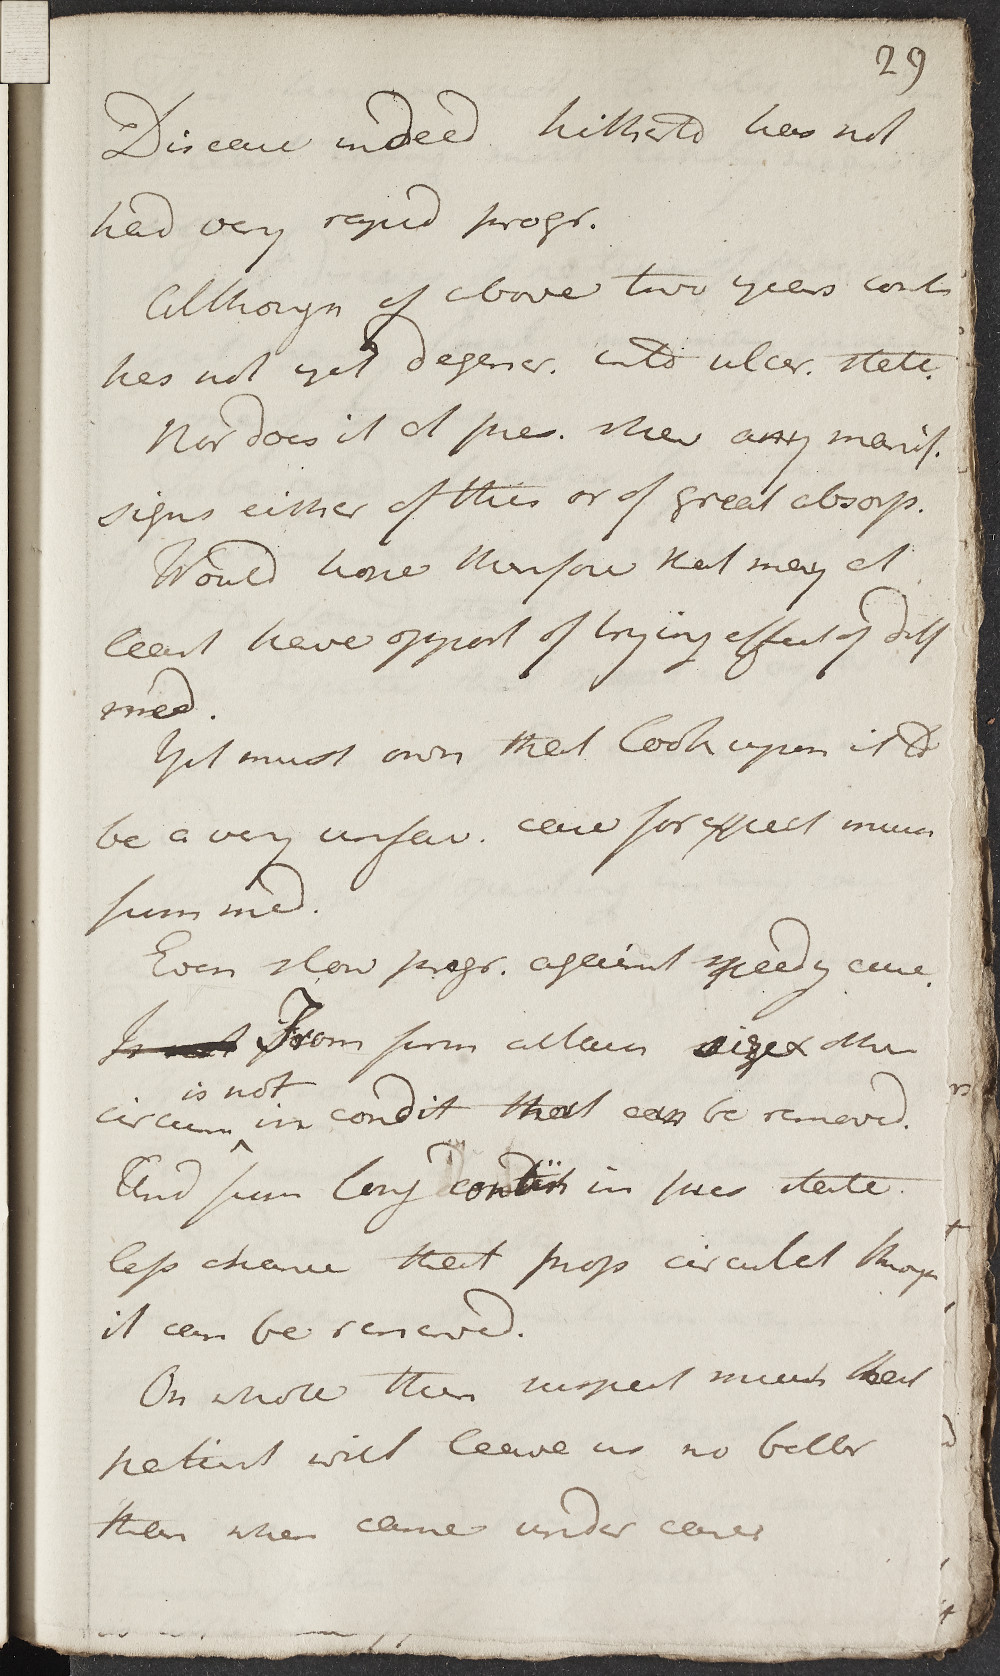 29
Disease indeed hitherto has not
had very rapid progr.
Although of above two years cont
has not yet degener. into ulcer. state.
Nor does it at pres. shew any manif.
signs either of this or of great absorp.
Would hope therefore that may at
least have opport of trying effect of diff
med.
Yet must own that look upon it to
be a very unfav. case for effect much
from med.
Even slow progr. against speedy cure.
Is not From firm attach size & other
is not
circum in condit that can be removed.
And from long contin in pres state
less chance that prop circulat through
it can be renewed.
On whole then suspect much that
patient will leave us no better
than when came under care